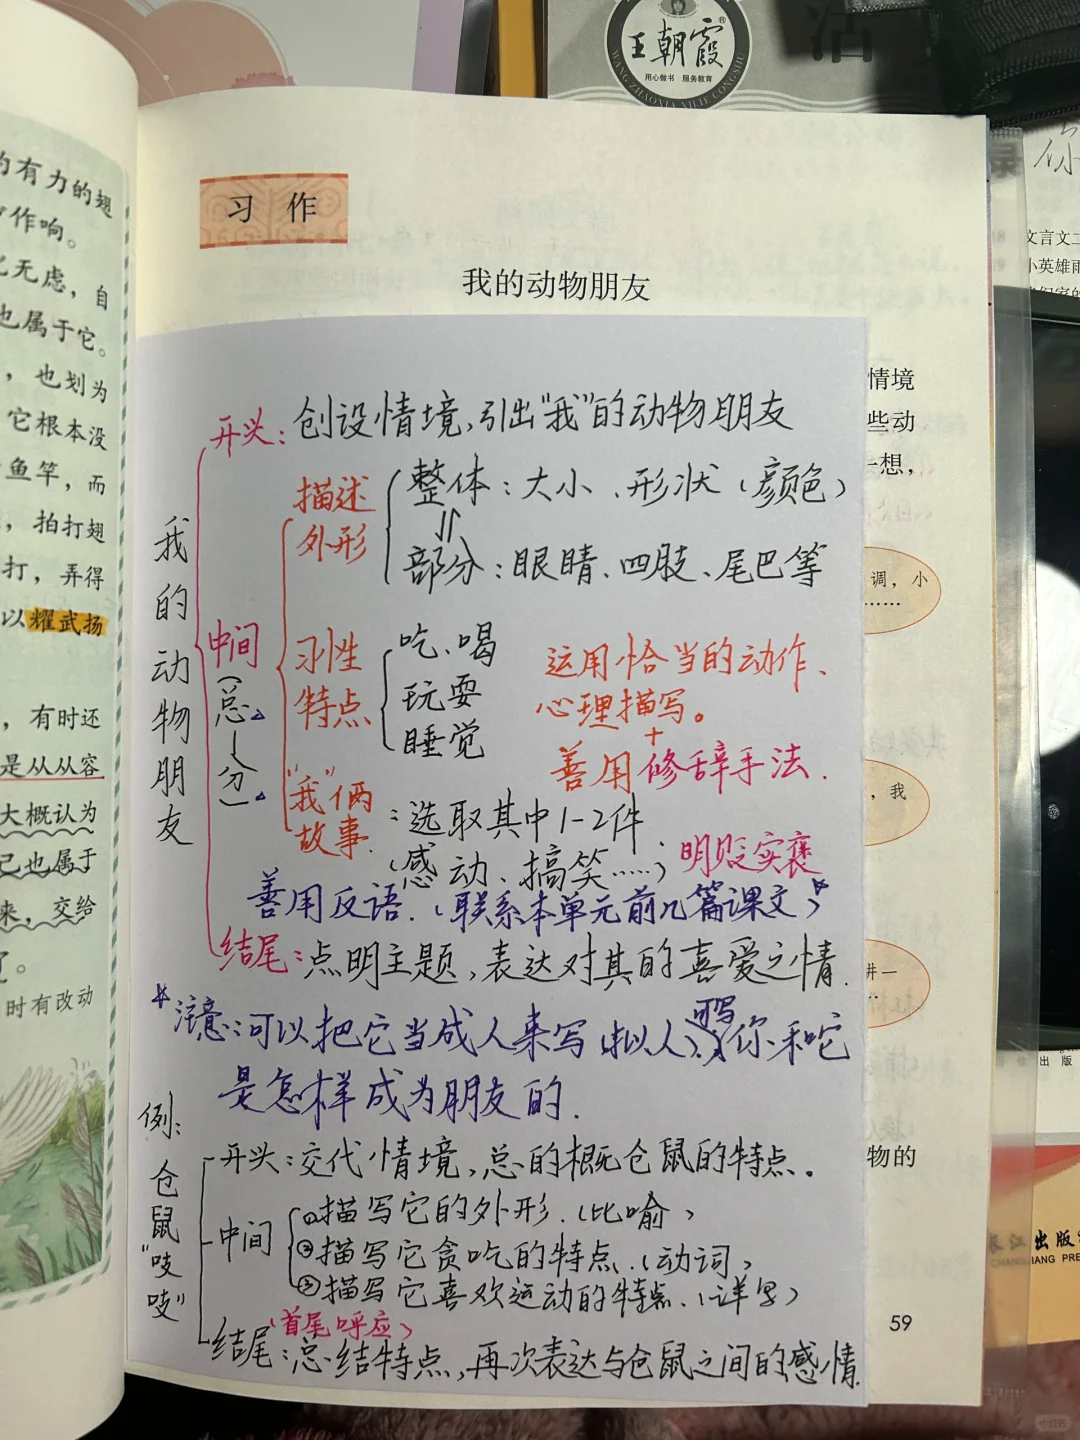 王朝霞
用心做书 服务教育
WANG ZHAOXIA XILIE CONGSHU
的有力的翅
作响。
无虑，自
也属于它。
，也划为
它根本没
鱼竿，而
，拍打翅
打，弄得
以耀武扬
，有时还
是从从容
大概认为
己也属于
来，交给
。
时有改动
习作
我的动物朋友
情境
些动
一想，
调，小
……
，我
讲一
物的
59
我的动物朋友
开头：创设情境，引出“我”的动物朋友
中间（总—分）
描述外形
整体：大小、形状（颜色）
部分：眼睛、四肢、尾巴等
习性特点
吃、喝
玩耍
睡觉
运用恰当的动作、
心理描写。
+
善用修辞手法.
“我”俩故事.：选取其中1-2件
（感动、搞笑……）明贬实褒
善用反语.（联系本单元前几篇课文）
结尾：点明主题，表达对其的喜爱之情.
注意：可以把它当成人来写（拟人）、可写你和它
是怎样成为朋友的.
例：
仓鼠“吱吱”
开头：交代情境，总的概况仓鼠的特点。
中间
①描写它的外形.（比喻）
②描写它贪吃的特点.（动词）
③描写它喜欢运动的特点.（详写）
（首尾呼应）
结尾：总结特点，再次表达与仓鼠之间的感情.
文言文二
小英雄雨
出版
长江出版
CHANGJIANG PRE
小红书